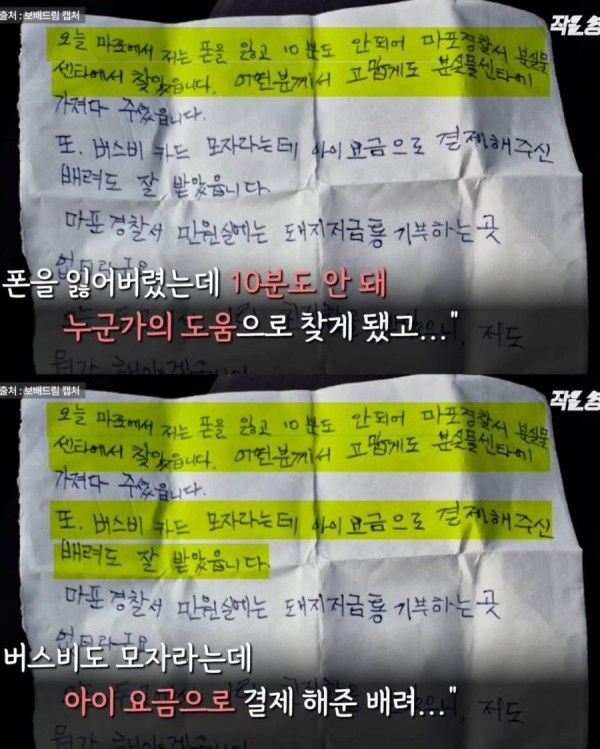 출처 : 보배드림 캡처
오늘 마포에서 저는 폰을 잃고 10분도 안되어 마포경찰서 분실물
센타에서 찾았읍니다. 어떤분께서 고맙게도 분실물센타에
가져다 주셨읍니다.
또. 버스비 카드 모자라는데 아이요금으로 결제해주신
배려도 잘 받았읍니다.
마포경찰서 민원실에는 돼지저금통 기부하는 곳
폰을 잃어버렸는데 10분도 안 돼
누군가의 도움으로 찾게 됐고..."
저도
출처 : 보배드림 캡처
오늘 마포에서 저는 폰을 잃고 10분도 안되어 마포경찰서 분실물
센타에서 찾았읍니다. 어떤분께서 고맙게도 분실물센타에
가져다 주셨읍니다.
또. 버스비 카드 모자라는데 아이요금으로 결제해주신
배려도 잘 받았읍니다.
마포경찰서 민원실에는 돼지저금통 기부하는 곳
버스비도 모자라는데
아이 요금으로 결제 해준 배려..."
저도